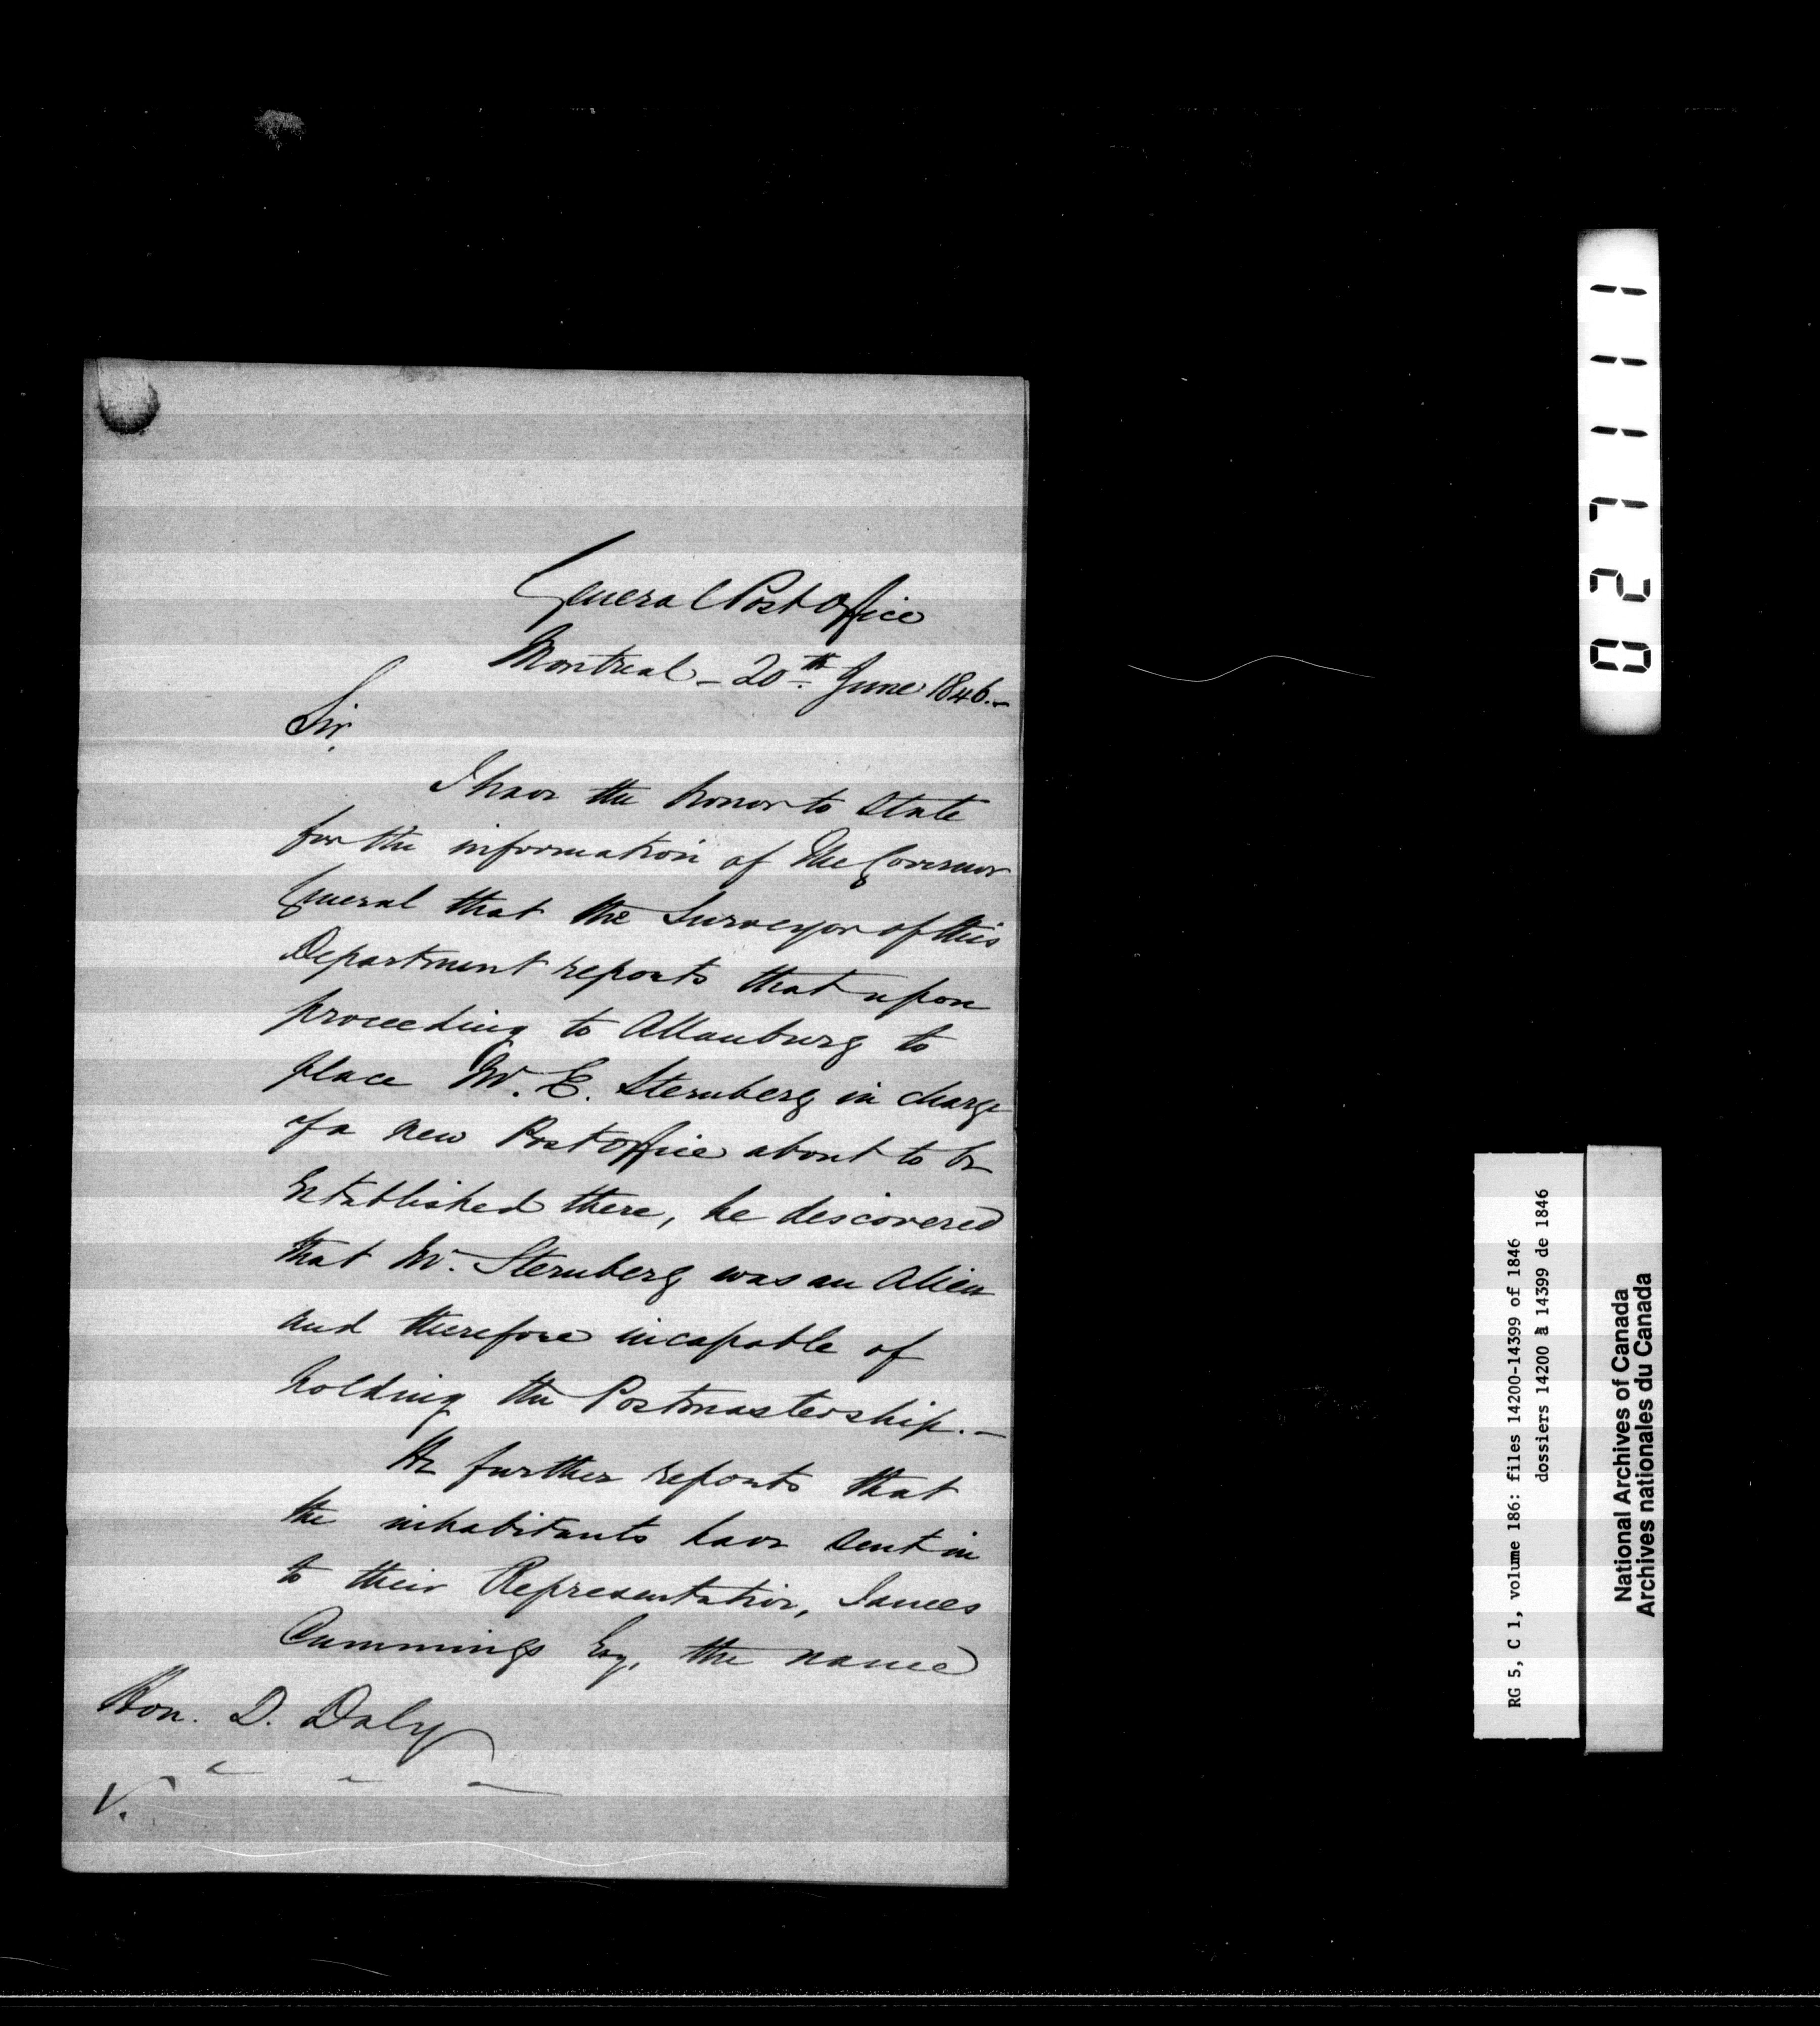 General Post Office
Montreal - 20th June 1846.-
Sir,
I have the honor to state
for the information of The Governor
General that the Surveyor of this
Department reports that upon
proceeding to Allanburg to
place Mr. E. Sternberg in charge
of a new Post Office about to be
Established there, he discovered
that Mr. Sternberg was an Alien
and therefore incapable of
holding the Postmastership.-
He further reports that
the inhabitants have sent in
to their Representative, James
Cummings Esq. the name
Hon. D. Daly
V.
027111
RG 5, C 1, volume 186: files 14200-14399 of 1846
dossiers 14200 à 14399 de 1846
National Archives of Canada
Archives nationales du Canada